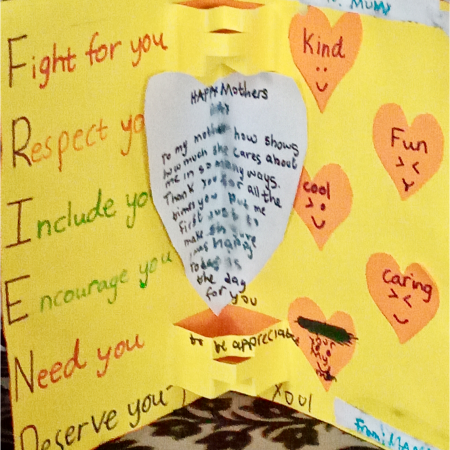 MUM
Fight for you
Respect yo
Include yo
Encourage you
Need you
Deserve you
HAPPY Mothers
Day
To my mother how shows
how much she cares about
me in so many ways.
Thank you for all the
times you put me
first just to
make sure
I was happy
Today is
the day
for you
to be appreciate
xoul
Kind
Fun
cool
caring
From: